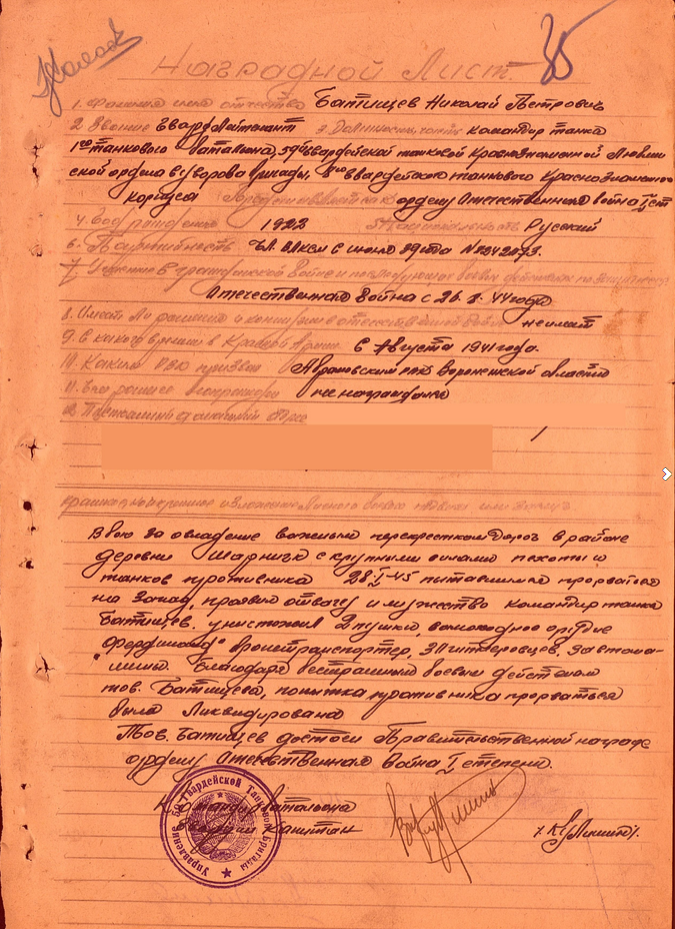 Наградной Лист.
1. Фамилия имя отчество Батищев Николай Петрович
2 Звание Гвард. Лейтенант 3. Должность, часть командир танка
1го танкового батальона, гвардейской танковой Краснознаменной Люблин
ской ордена Суворова бригады, гвардейского танкового Краснознаменного
корпуса ордену Отечественная война I ст
4. Год рождения 1922 Национальность Русский
6. Партийность Чл. ВЛКСМ с июля 39 года
7. Участие в гражданской войне и последующих боевых действиях по защите
Отечественная война с 26. 44 года
8. Имеет ли ранения и контузии в отечественной войне не имеет
9. С какого времени в Красной Армии с Августа 1941 года.
10. Каким РВК призван РВК Воронежской области
11. Чем ранее награжден не награждался
12. Постоянный домашний адрес
краткое конкретное изложение личного боевого подвига или заслуг
В бою за овладение важным перекрестком дорог в районе
деревни с крупными силами пехоты и
танков противника 28.I-45 пытавшимися прорваться
на Запад, проявил отвагу и мужество командир танка
Батищев, уничтожил 2 пушки, самоходное орудие
„Фердинанд" бронетранспортер, гитлеровцев, 3 автома-
шины. Благодаря бесстрашным боевым действиям
тов. Батищева, попытка противника прорваться
была Ликвидирована
Тов. Батищев достоин Правительственной награде
ордену Отечественная Война I степени.
Командир батальона
Гвардии Капитан
Управление 59 Гвардейской Танковой Бригады